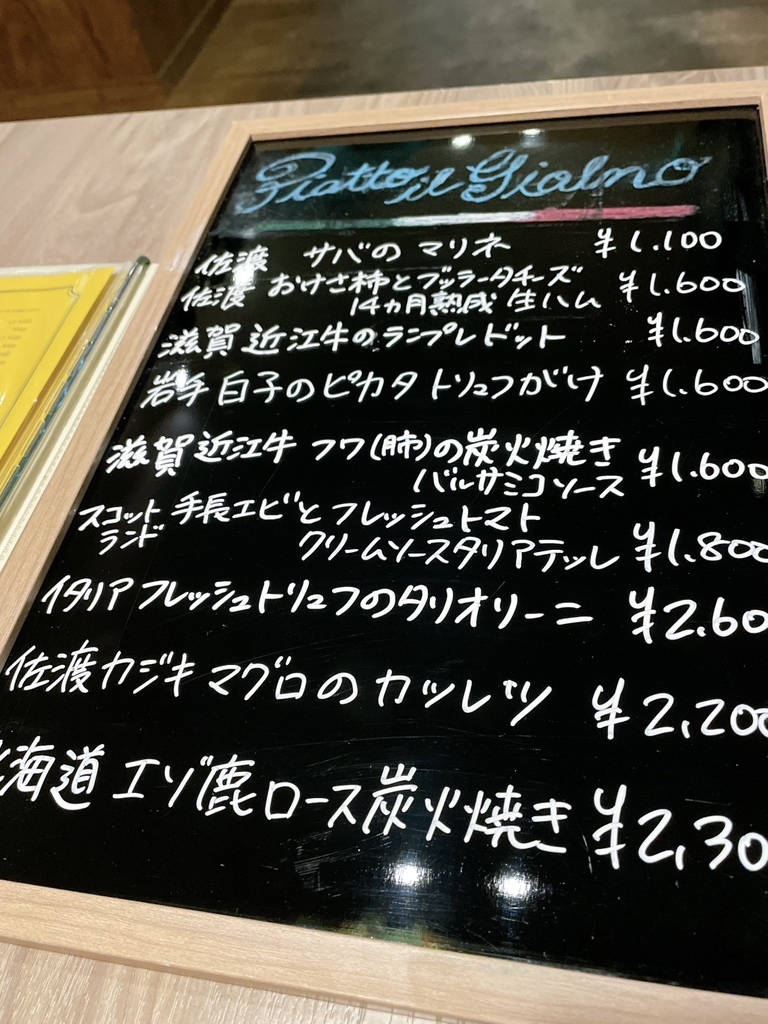 Piatto il Gialno
佐渡 サバのマリネ ¥1.100
佐渡 おけさ柿とブッラータチーズ ¥1.600
14ヵ月熟成 生ハム
滋賀 近江牛のランプレドット ¥1.600
岩手 白子のピカタ トリュフがけ ¥1.600
滋賀 近江牛 フワ(肺)の炭火焼き ¥1.600
バルサミコソース
スコットランド 手長エビとフレッシュトマト
クリームソースタリアテッレ ¥1.800
イタリア フレッシュトリュフのタリオリーニ ¥2.60
佐渡カジキマグロのカツレツ ¥2,200
海道 エゾ鹿ロース炭火焼き ¥2,30